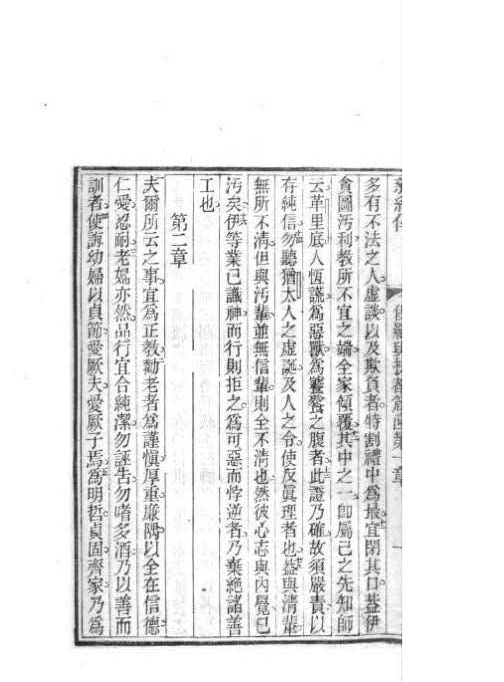 多有不法之人虛談以及欺負者特割禮中為最宜閉其口蓋伊
貪圖污利教所不宜之端全家傾覆其中之一即屬己之先知師
云革里底人恆謊為惡獸為饕餮之腹者此證乃確故須嚴責以
存純信勿聽猶太人之虛誕及人之令使反眞理者也蓋與清輩
無所不清但與污輩並無信輩則全不清也然彼心志與內覺已
污矣伊等業已識神而行則拒之為可惡而悖逆者乃棄絶諸善
工也
第二章
夫爾所云之事宜為正教勸老者為謹慎厚重廉隅以全在信德
仁愛忍耐老婦亦然品行宜合純潔勿誣告勿嗜多酒乃以善而
訓者使誨幼婦以貞節愛厥夫愛厥子焉為明哲貞固齊家乃為